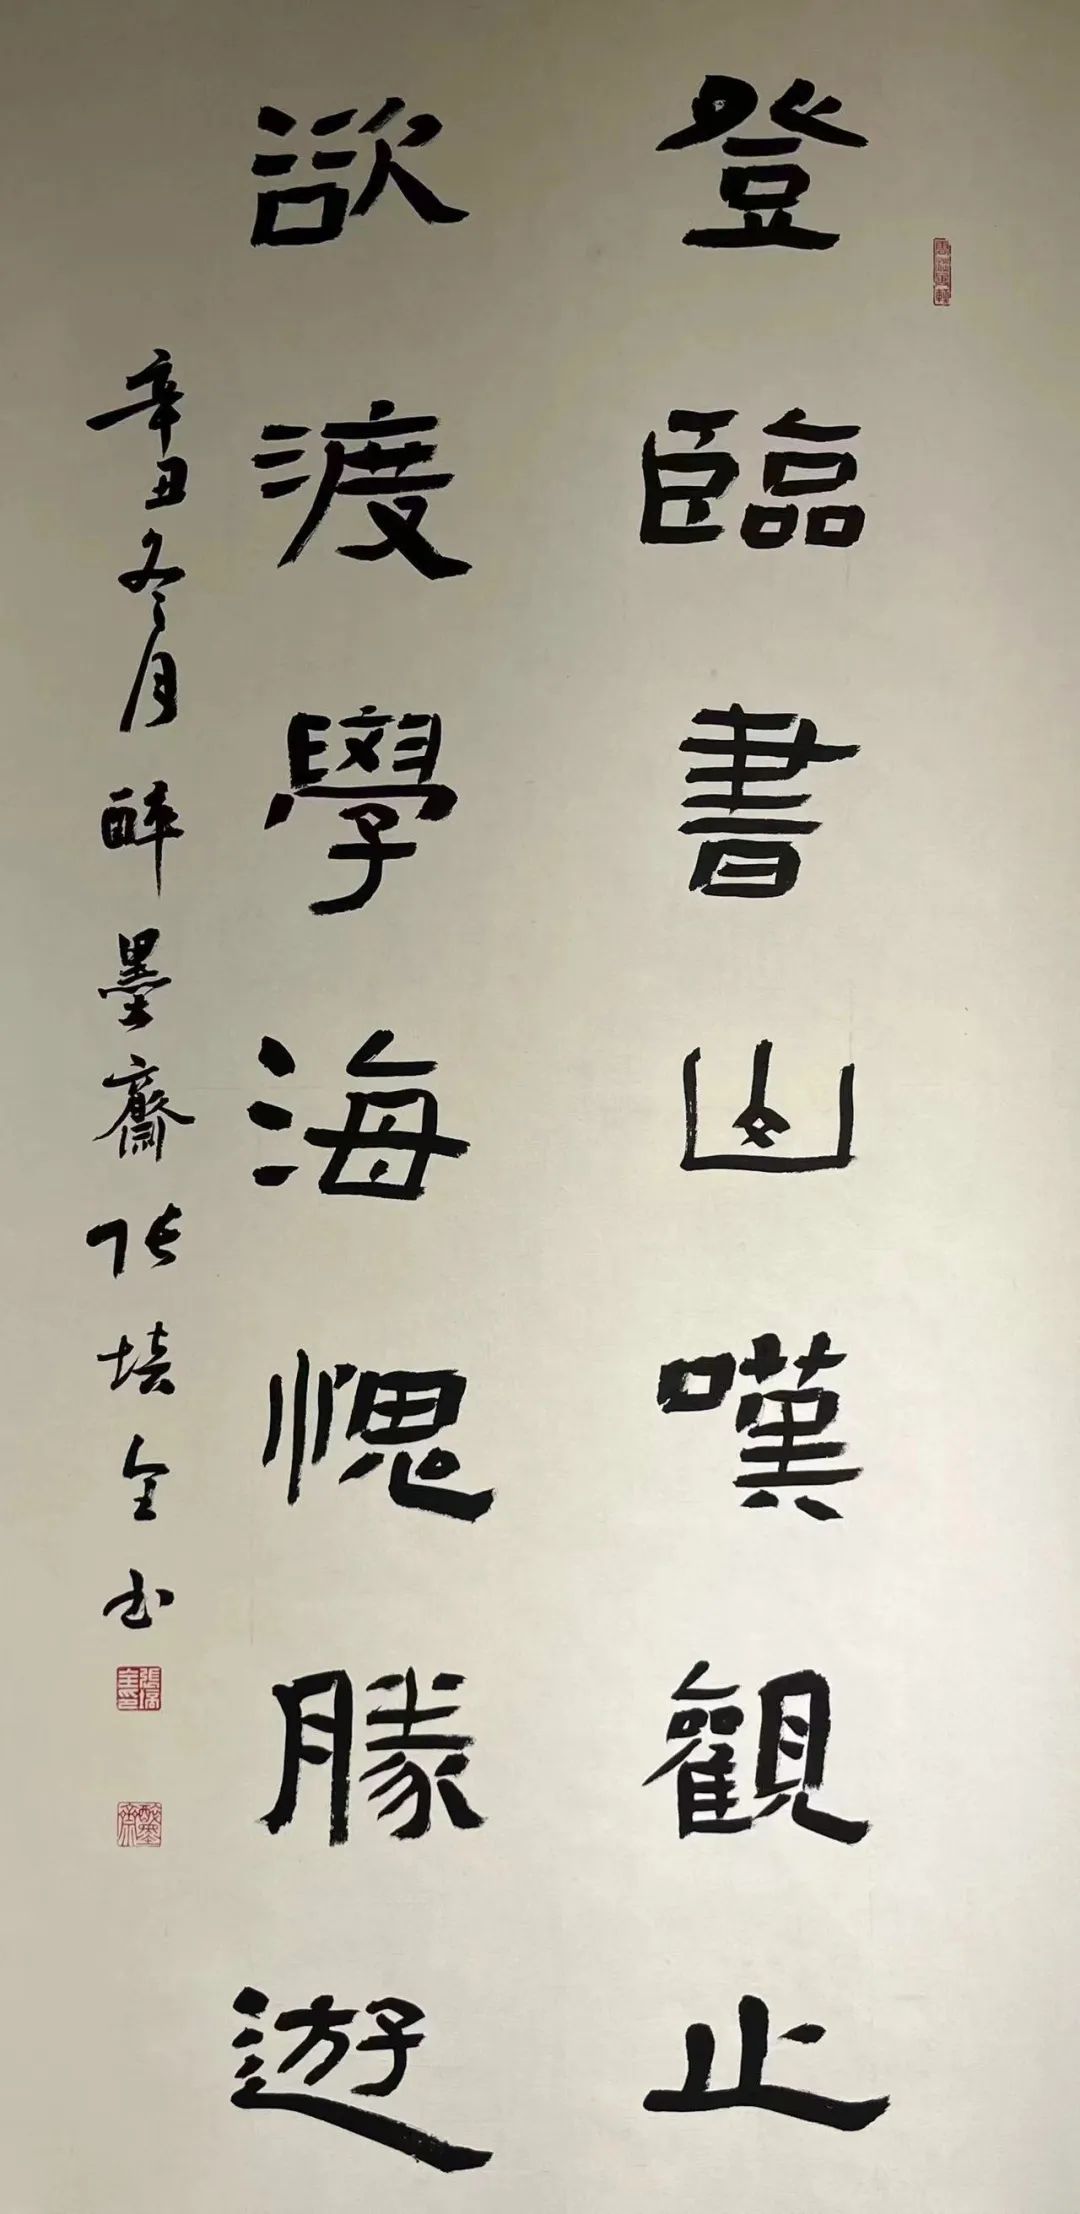 登臨書山嘆觀止
欲渡學海愧勝遊
辛丑冬月醉墨齋張培全书